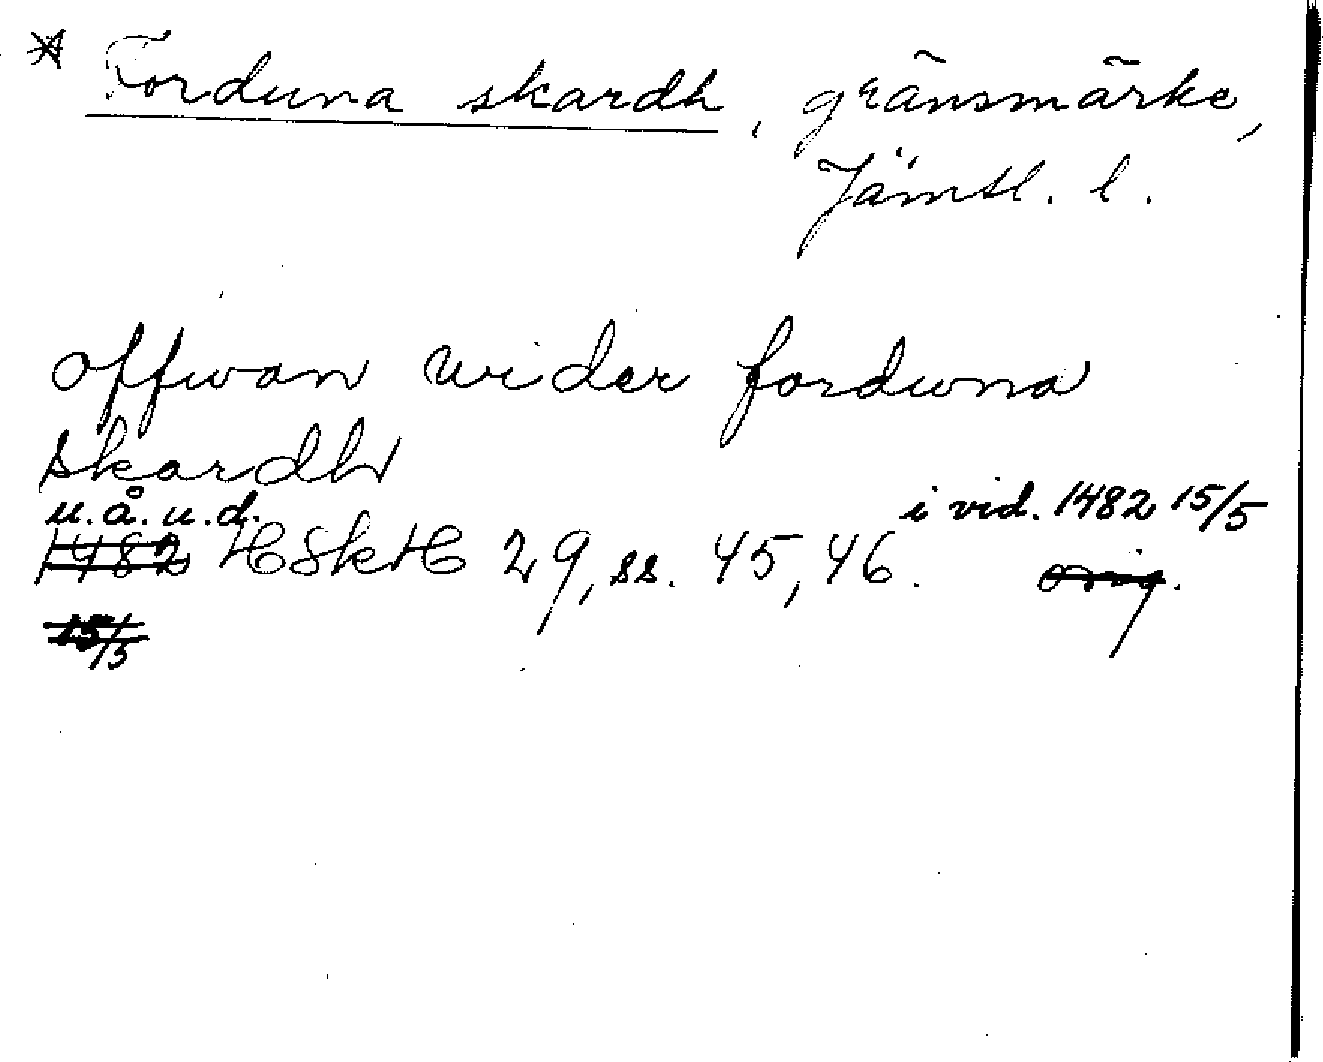 * Forduna skardh, gränsmärke,
Jämtl. l.
offwan wider forduna
skardh
u.å.u.d. i vid. 1482 15/5
1482 HSkH 29, ss. 45, 46. orig.
15/5